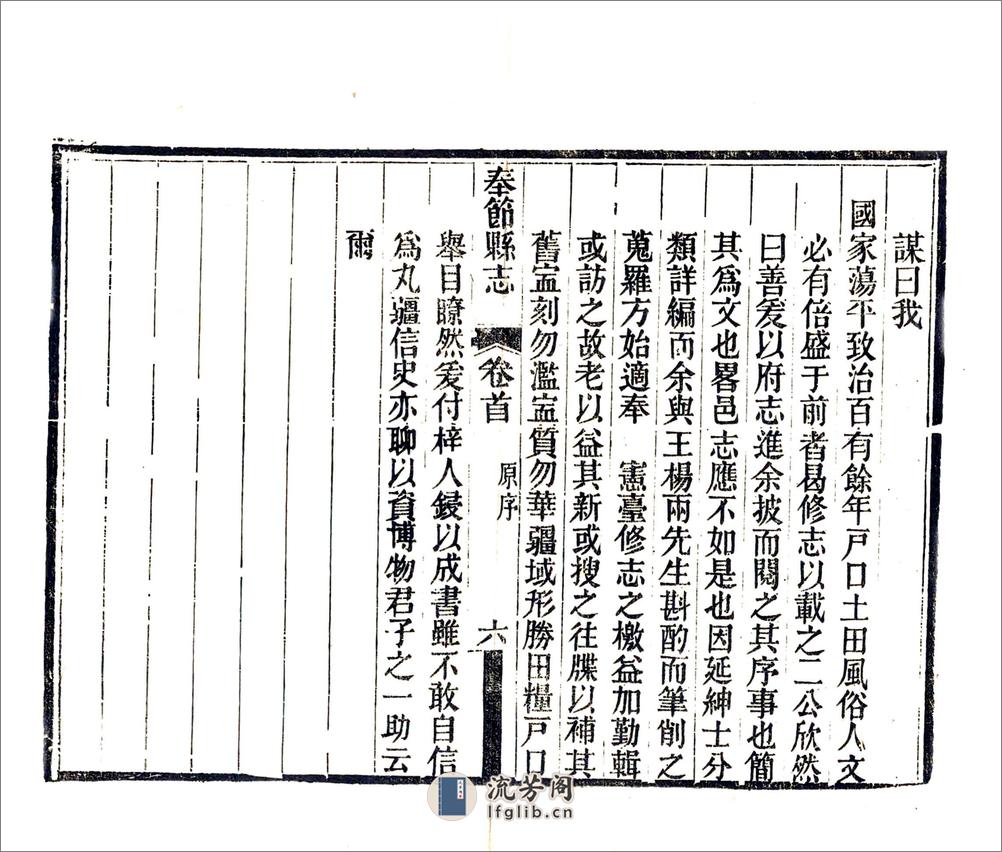 謀曰我
國家蕩平致治百有餘年戸口土田風俗人文
必有倍盛于前者曷修志以載之二公欣然
曰善爰以府志進余披而閱之其序事也簡
其爲文也畧邑志應不如是也因延紳士分
類詳編而余與王楊兩先生斟酌而筆削之
蒐羅方始適奉　憲臺修志之檄益加勤輯
或訪之故老以益其新或搜之往牒以補其
舊寍刻勿濫寍質勿華疆域形勝田糧戸口
奉節縣志
卷首
原序
六
舉目瞭然爰付梓人鋟以成書雖不敢自信
爲丸疆信史亦聊以資博物君子之一助云
爾
流芳阁
lfglib.cn